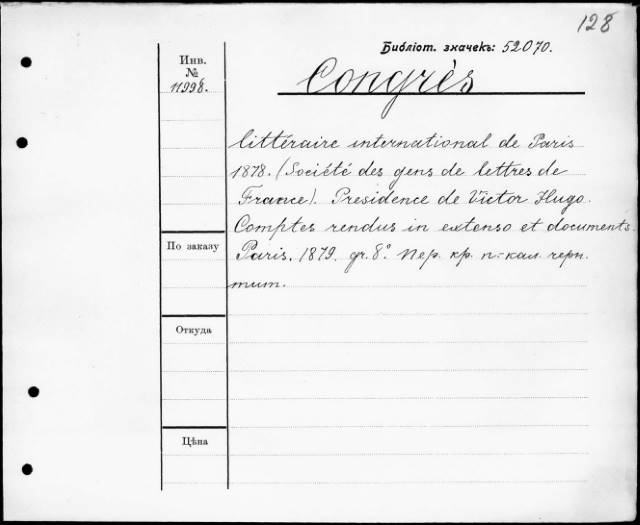 128
Библіот. значекъ: 52070.
Инв.
№
11998.
Congrès
littéraire international de Paris
1878. (Société des gens de lettres de
France). Presidence de Victor Hugo.
Comptes rendus in extenso et documents.
Paris. 1879. gr. 8°. Пер. кр. п.-кал. черн.
тит.
По заказу
Откуда
Цѣна